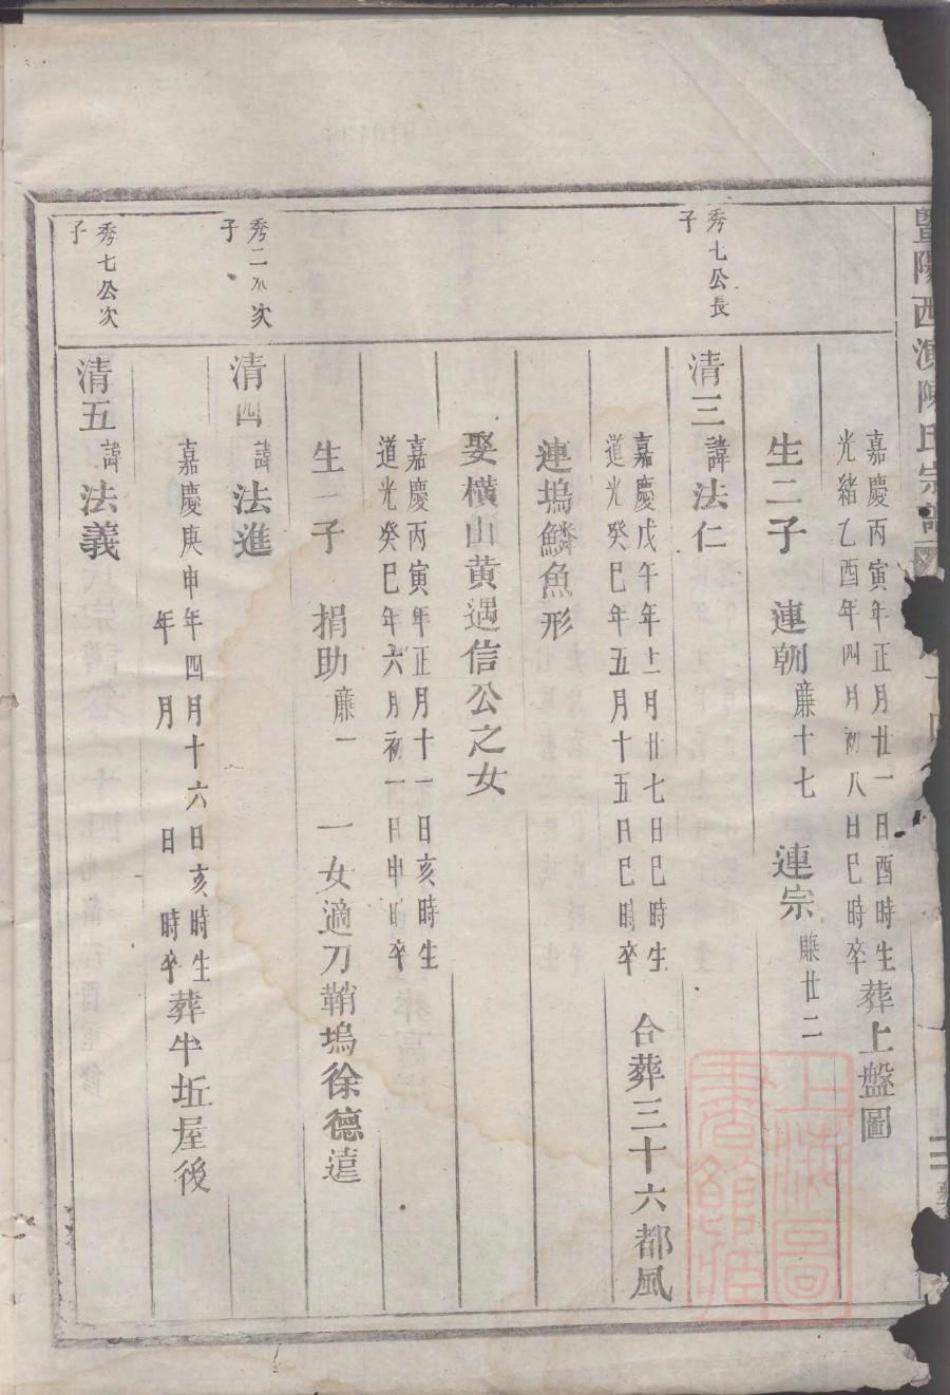 暨陽西演陳氏宗譜
嘉慶丙寅年正月廿一日酉時生
光緒乙酉年四月初八日巳時卒
葬上盤圖
生二子 連朝廉十七 連宗廉廿二
秀七公長子
清三諱法仁
嘉慶戊午年十一月廿七日巳時生
道光癸巳年五月十五日巳時卒
合葬三十六都風
連塢鱗魚形
娶橫山黃遇信公之女
嘉慶丙寅年正月十一日亥時生
道光癸巳年六月初一日申時卒
生一子 捐助廉一 一女適刀鞘塢徐德遠
秀二公次子
清四諱法進
嘉慶庚申年四月十六日亥時生
年 月 日 時卒
葬牛坵屋後
秀七公次子
清五諱法義